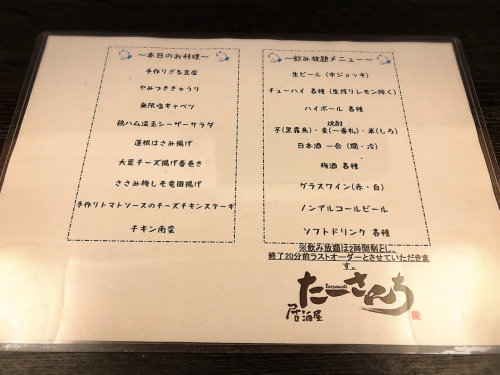 ～本日のお料理～
手作りざる豆腐
やみつききゅうり
無限塩キャベツ
鶏ハム温玉シーザーサラダ
蓮根はさみ揚げ
大葉チーズ揚げ春巻き
ささみ梅しそ竜田揚げ
手作りトマトソースのチーズチキンステーキ
チキン南蛮
～飲み放題メニュー～
生ビール（中ジョッキ）
チューハイ 各種（生搾りレモン除く）
ハイボール 各種
焼酎
芋(黒霧島)・麦(一番札)・米(しろ)
日本酒 一合（燗・冷）
梅酒 各種
グラスワイン(赤・白)
ノンアルコールビール
ソフトドリンク 各種
※飲み放題は2時間制とし、
終了20分前ラストオーダーとさせていただきま
す。
たーさんち
居酒屋